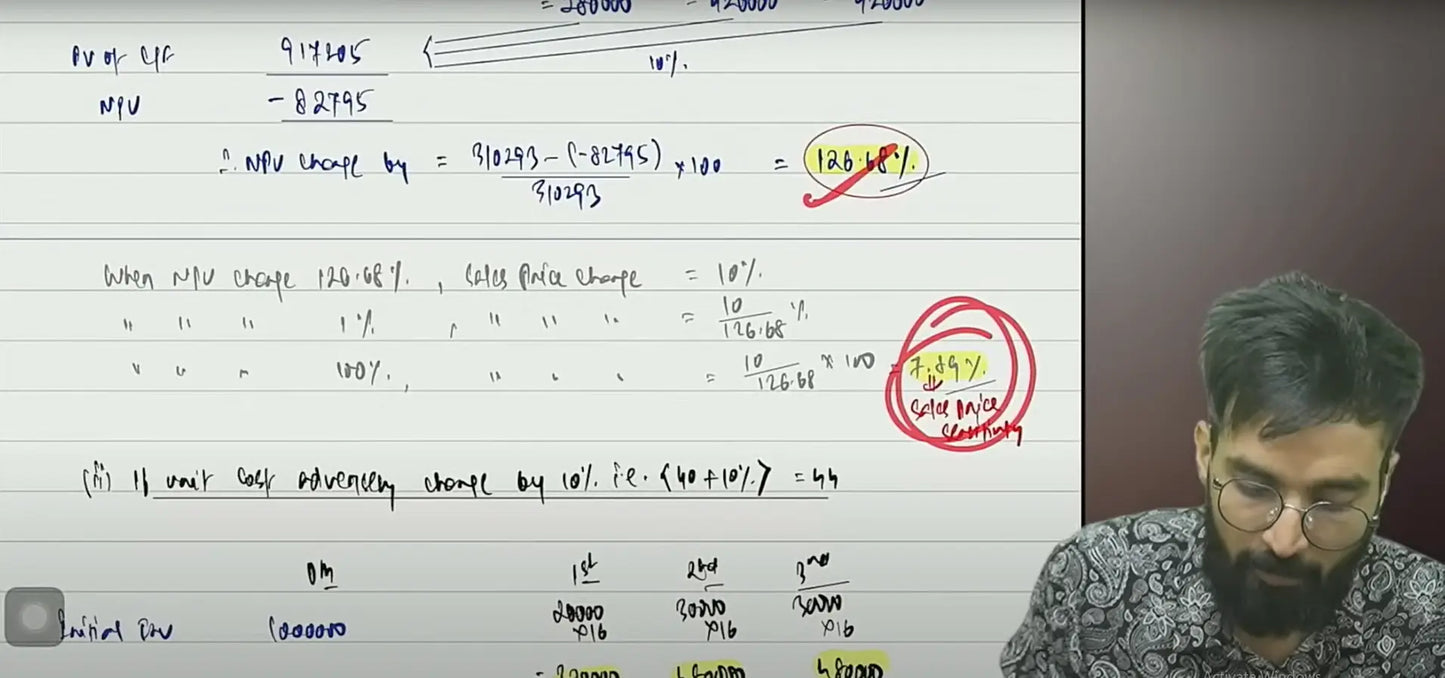 = 280000 = 420000 = 420000
PV of C/F 917205
10%.
NPV - 82795
∴ NPV change by = 310293 - (-82795) / 310293 × 100 = 126.68%.
When NPV change 126.68%. , Sales Price change = 10%.
" " " 1%. , " " " = 10 / 126.68 %.
" " " 100%. , " " " = 10 / 126.68 × 100 = 7.89%.
⇓
Sales Price
Sensitivity
(ii) If unit cost adversely change by 10%. i.e. (40 + 10%.) = 44
0th 1st 2nd 3rd
20000 30000 30000
Initial Inv 1000000 ×16 ×16 ×16
= 320000 480000 480000
Activate Windows